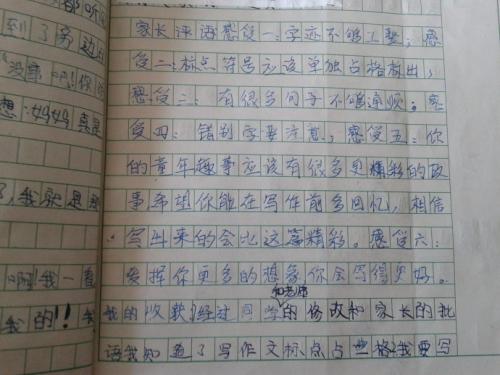 到了旁边
"没事吧!你
想:妈妈真是
了,我就是
啊!我一看
我的!!我
家长评语感受一:字迹不够工整;感
受二:标点符号应该单独占格标出;
感受三:有很多句子不够通顺。感
受四:错别字要注意;感受五:你
的童年趣事应该有很多更精彩的故
事希望你能在写作前多回忆,相信
写出来的会比这篇精彩。感受六:
发挥你更多的想象你会写得更好。
和老师
我的收获:经过同学的修改和家长的批
语我知道了写作文标点占一格,我要写